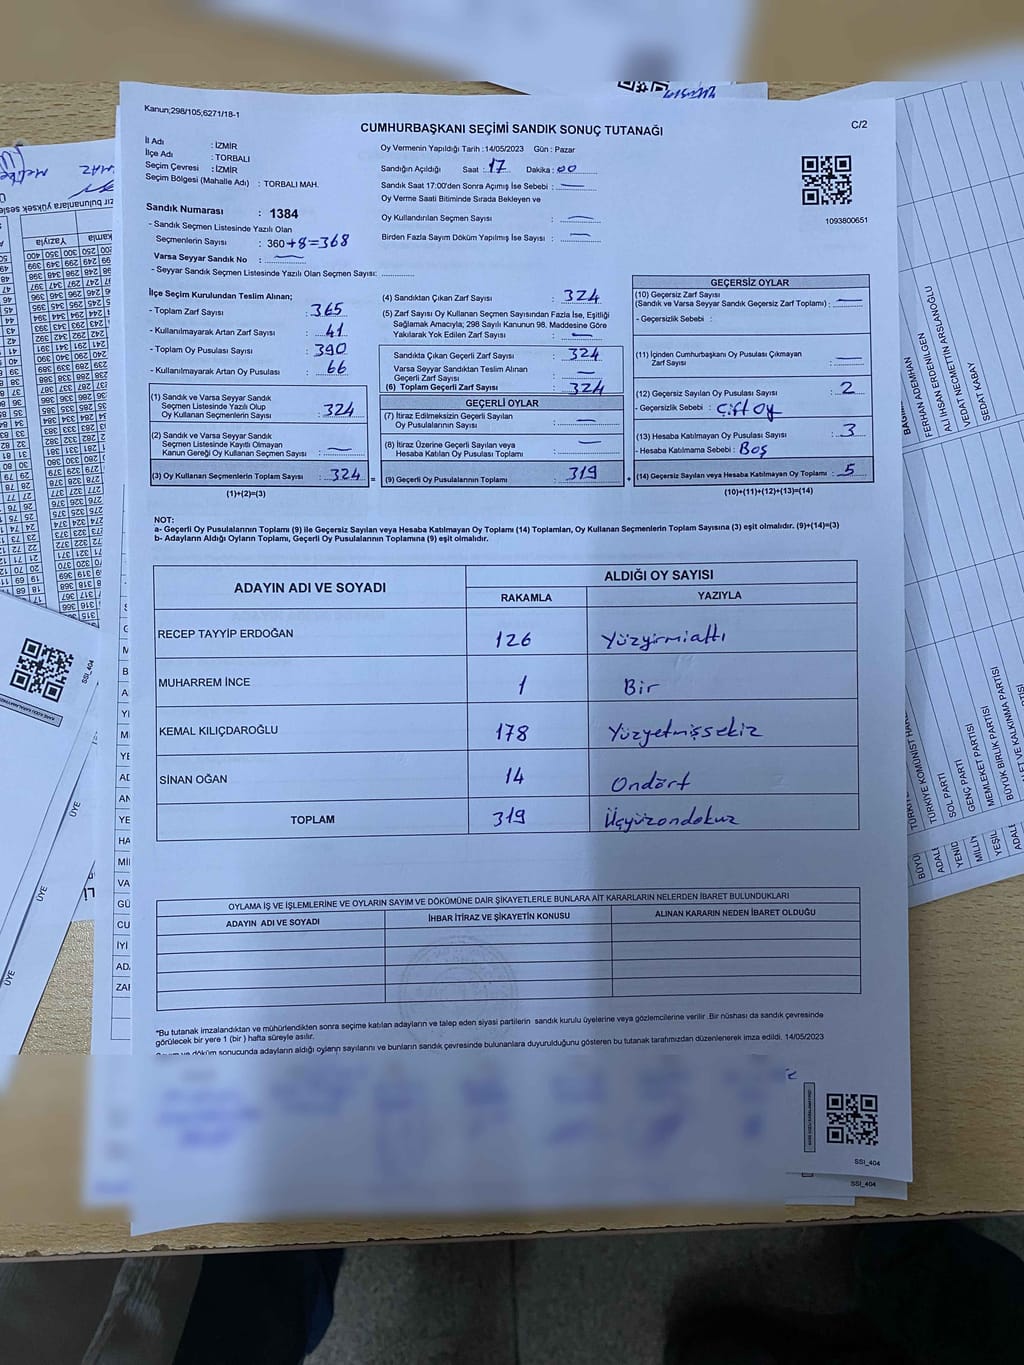 Kanun;298/105;6271/18-1
CUMHURBAŞKANI SEÇİMİ SANDIK SONUÇ TUTANAĞI
C/2
İl Adı : İZMİR
İlçe Adı : TORBALI
Seçim Çevresi : İZMİR
Seçim Bölgesi (Mahalle Adı) : TORBALI MAH.
Oy Vermenin Yapıldığı Tarih :14/05/2023 Gün : Pazar
Sandığın Açıldığı Saat : 17 Dakika : 00
Sandık Saat 17:00'den Sonra Açımış İse Sebebi : —
Oy Verme Saati Bitiminde Sırada Bekleyen ve
Oy Kullandırılan Seçmen Sayısı : —
Birden Fazla Sayım Döküm Yapılmış İse Sayısı : —
1093800651
Sandık Numarası : 1384
- Sandık Seçmen Listesinde Yazılı Olan
Seçmenlerin Sayısı : 360+8=368
Varsa Seyyar Sandık No : —
- Seyyar Sandık Seçmen Listesinde Yazılı Olan Seçmen Sayısı:
İlçe Seçim Kurulundan Teslim Alınan;
- Toplam Zarf Sayısı : 365
- Kullanılmayarak Artan Zarf Sayısı : 41
- Toplam Oy Pusulası Sayısı : 390
- Kullanılmayarak Artan Oy Pusulası : 66
(1) Sandık ve Varsa Seyyar Sandık
Seçmen Listesinde Yazılı Olup
Oy Kullanan Seçmenlerin Sayısı : 324
(2) Sandık ve Varsa Seyyar Sandık
Seçmen Listesinde Kayıtlı Olmayan
Kanun Gereği Oy Kullanan Seçmen Sayısı : —
(3) Oy Kullanan Seçmenlerin Toplam Sayısı : 324 =
(1)+(2)=(3)
(4) Sandıktan Çıkan Zarf Sayısı : 324
(5) Zarf Sayısı Oy Kullanan Seçmen Sayısından Fazla İse, Eşitliği
Sağlamak Amacıyla; 298 Sayılı Kanunun 98. Maddesine Göre
Yakılarak Yok Edilen Zarf Sayısı : —
Sandıkta Çıkan Geçerli Zarf Sayısı : 324
Varsa Seyyar Sandıktan Teslim Alınan
Geçerli Zarf Sayısı : —
(6) Toplam Geçerli Zarf Sayısı : 324
GEÇERLİ OYLAR
(7) İtiraz Edilmeksizin Geçerli Sayılan
Oy Pusulalarının Sayısı : —
(8) İtiraz Üzerine Geçerli Sayılan veya
Hesaba Katılan Oy Pusulası Toplamı : —
(9) Geçerli Oy Pusulalarının Toplamı : 319 +
GEÇERSİZ OYLAR
(10) Geçersiz Zarf Sayısı
(Sandık ve Varsa Seyyar Sandık Geçersiz Zarf Toplamı) : —
- Geçersizlik Sebebi :
(11) İçinden Cumhurbaşkanı Oy Pusulası Çıkmayan
Zarf Sayısı : —
(12) Geçersiz Sayılan Oy Pusulası Sayısı : 2
- Geçersizlik Sebebi : Çift Oy
(13) Hesaba Katılmayan Oy Pusulası Sayısı : 3
- Hesaba Katılmama Sebebi : Boş
(14) Geçersiz Sayılan veya Hesaba Katılmayan Oy Toplamı : 5
(10)+(11)+(12)+(13)=(14)
NOT:
a- Geçerli Oy Pusulalarının Toplamı (9) ile Geçersiz Sayılan veya Hesaba Katılmayan Oy Toplamı (14) Toplamları, Oy Kullanan Seçmenlerin Toplam Sayısına (3) eşit olmalıdır. (9)+(14)=(3)
b- Adayların Aldığı Oyların Toplamı, Geçerli Oy Pusulalarının Toplamına (9) eşit olmalıdır.
ADAYIN ADI VE SOYADI
ALDIĞI OY SAYISI
RAKAMLA YAZIYLA
RECEP TAYYİP ERDOĞAN 126 Yüzyirmialtı
MUHARREM İNCE 1 Bir
KEMAL KILIÇDAROĞLU 178 Yüzyetmişsekiz
SİNAN OĞAN 14 Ondört
TOPLAM 319 Üçyüzondokuz
OYLAMA İŞ VE İŞLEMLERİNE VE OYLARIN SAYIM VE DÖKÜMÜNE DAİR ŞİKAYETLERLE BUNLARA AİT KARARLARIN NELERDEN İBARET BULUNDUKLARI
ADAYIN ADI VE SOYADI İHBAR İTİRAZ VE ŞİKAYETİN KONUSU ALINAN KARARIN NEDEN İBARET OLDUĞU
*Bu tutanak imzalandıktan ve mühürlendikten sonra seçime katılan adayların ve talep eden siyasi partilerin sandık kurulu üyelerine veya gözlemcilerine verilir .Bir nüshası da sandık çevresinde
görülecek bir yere 1 (bir ) hafta süreyle asılır.
döküm sonucunda adayların aldığı oyların sayılarını ve bunların sandık çevresinde bulunanlara duyurulduğunu gösteren bu tutanak tarafımızdan düzenlenerek imza edildi. 14/05/2023
SSI_404
SSI_404
SSI_404
ÜYE
ÜYE
ÜYE
FERHAN ADEMHAN
ALİ İHSAN ERDENİLGEN
VEDAT NECMETTİN ARSLANOĞLU
SEDAT KABAY
TÜRKİYE KOMÜNİST
SOL PARTİ
GENÇ PARTİ
MEMLEKET PARTİSİ
BÜYÜK BİRLİK PARTİSİ
VE KALKINMA PARTİSİ